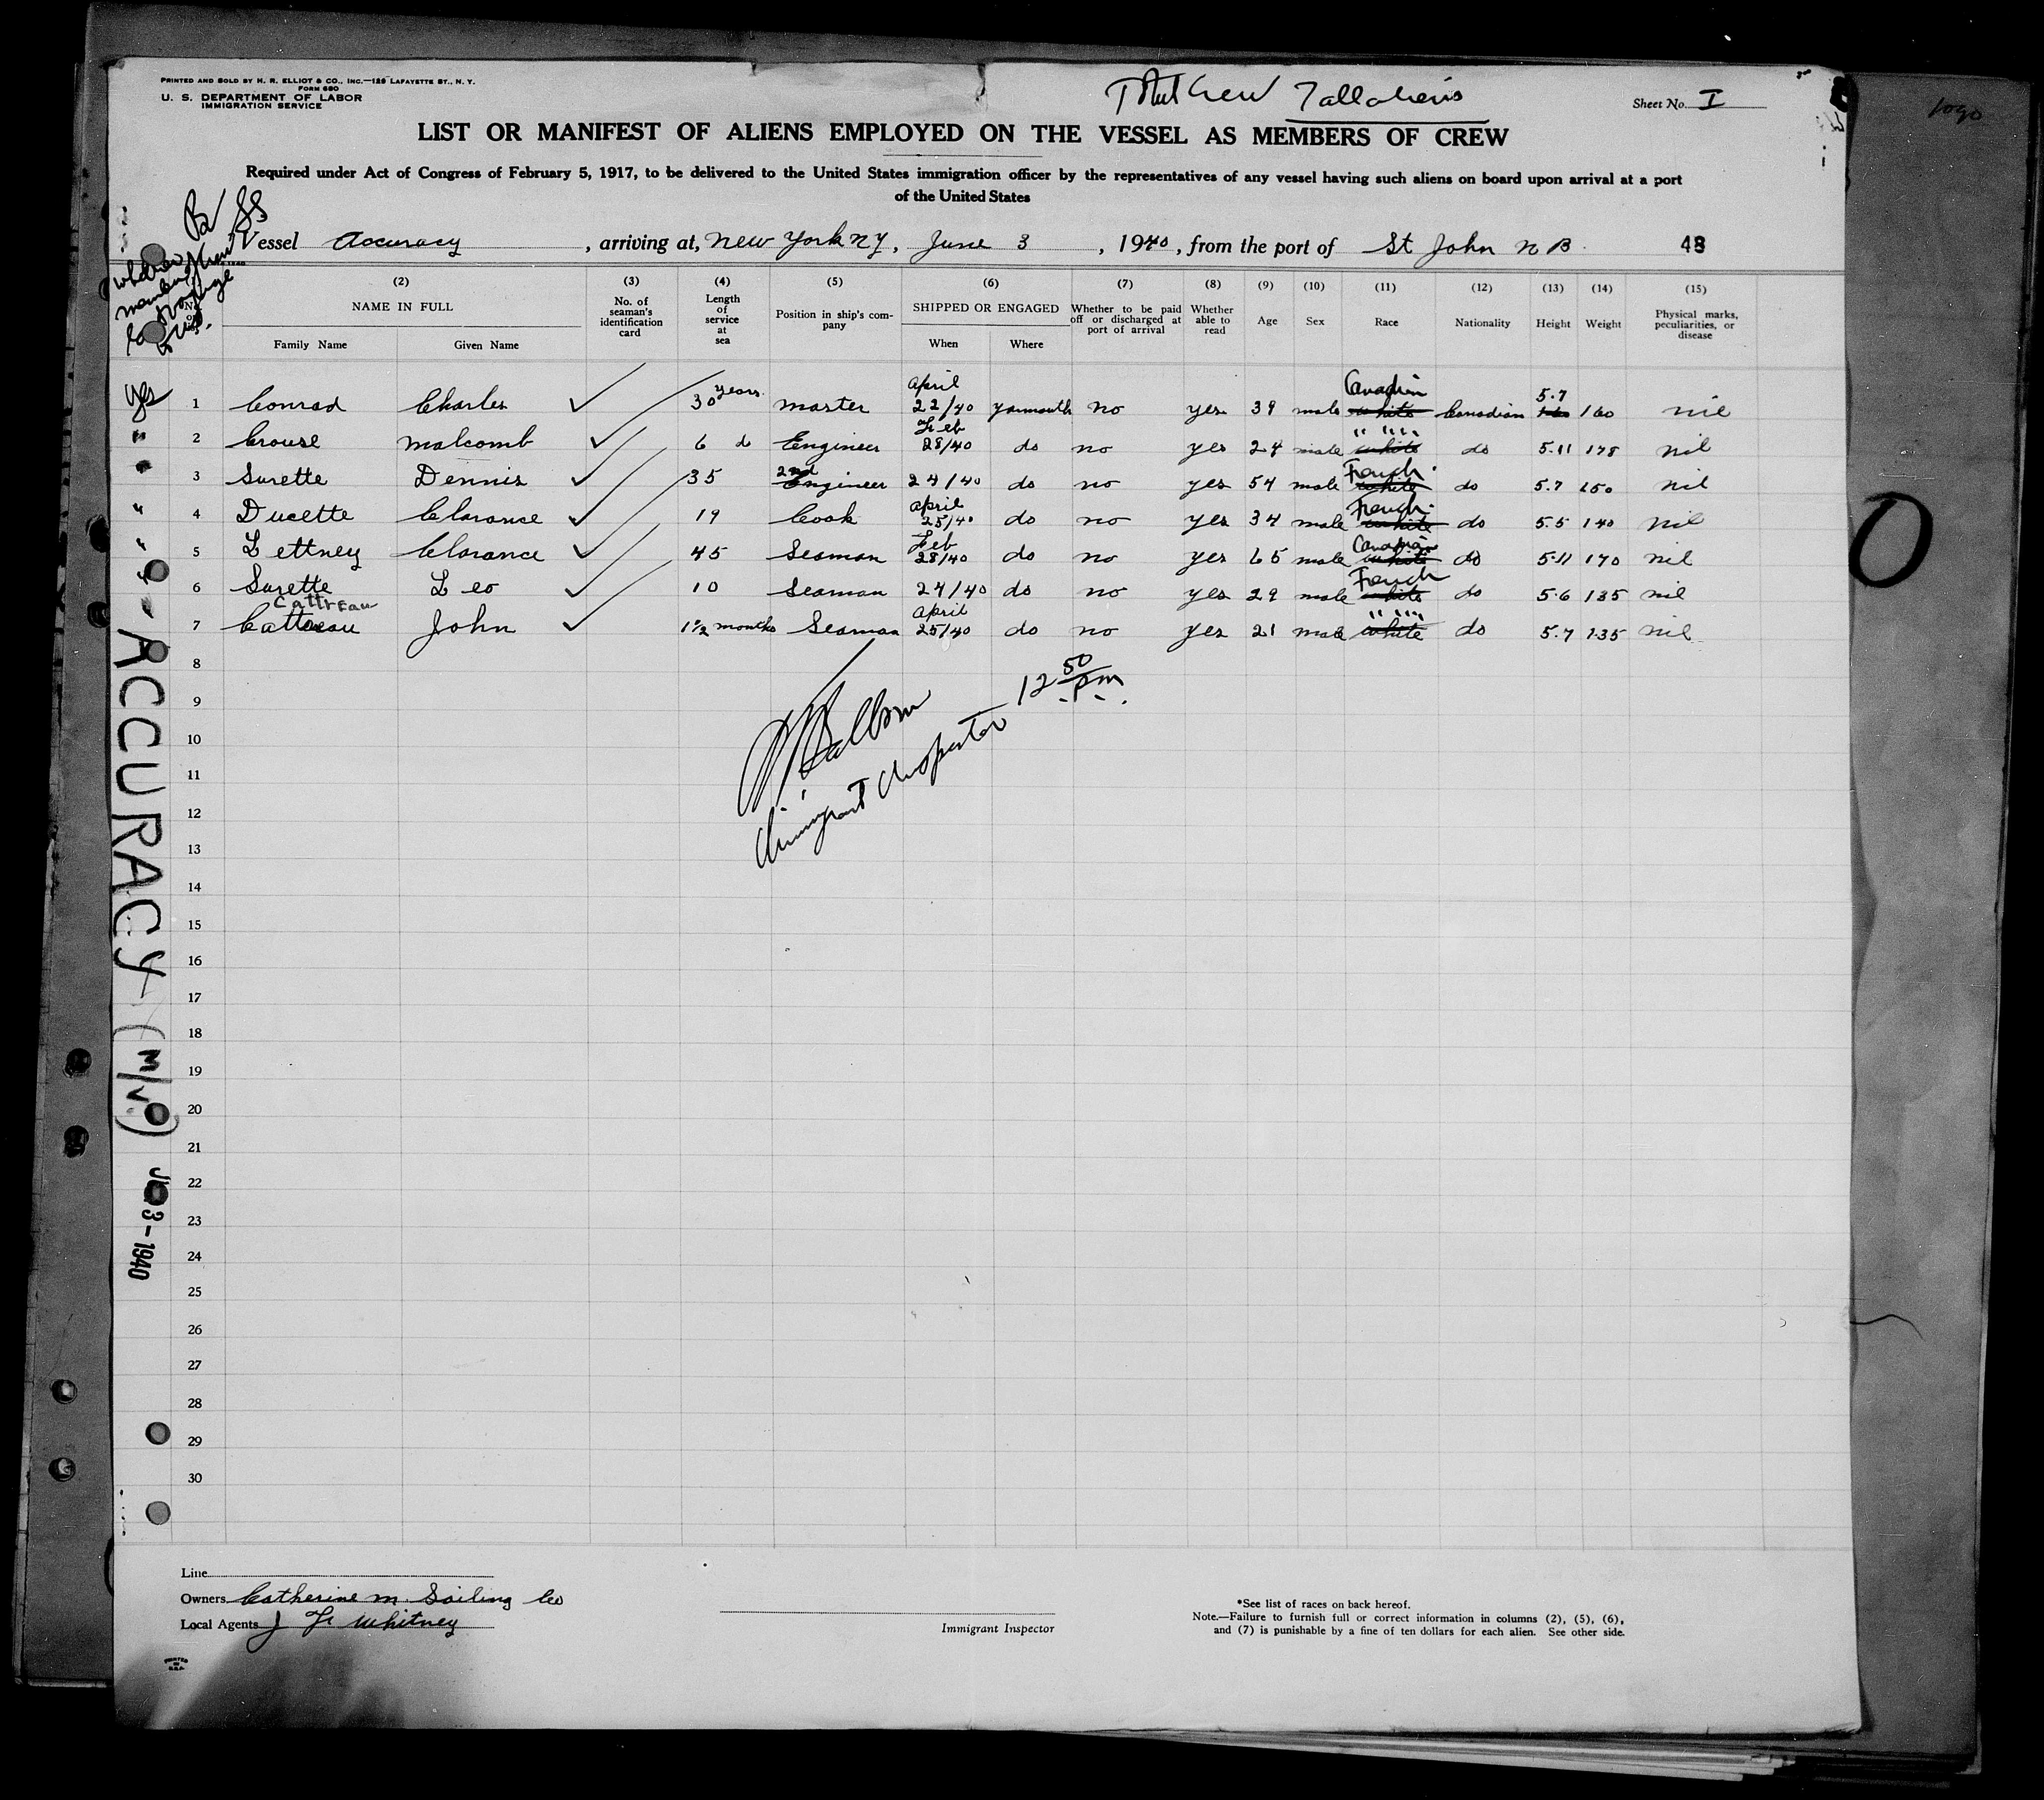 PRINTED AND SOLD BY H. R. ELLIOT & CO., INC.—129 LAFAYETTE ST., N. Y.
FORM 680
U. S. DEPARTMENT OF LABOR
IMMIGRATION SERVICE
Crew 7 all aliens
Sheet No. I
LIST OR MANIFEST OF ALIENS EMPLOYED ON THE VESSEL AS MEMBERS OF CREW
Required under Act of Congress of February 5, 1917, to be delivered to the United States immigration officer by the representatives of any vessel having such aliens on board upon arrival at a port
of the United States
Vessel Accuracy, arriving at, New York NY, June 3, 1940, from the port of St John N B. 43
(2) (3) (4) (5) (6) (7) (8) (9) (10) (11) (12) (13) (14) (15)
NAME IN FULL No. of seaman's identification card Length of service at sea Position in ship's company SHIPPED OR ENGAGED Whether to be paid off or discharged at port of arrival Whether able to read Age Sex Race Nationality Height Weight Physical marks, peculiarities, or disease
Family Name Given Name When Where
yes 1 Conrad Charles 30 years master April 22/40 Yarmouth no yes 39 male white Canadian Canadian 5.7 160 nil
" 2 Crouse malcomb 6 do Engineer Feb 28/40 do no yes 24 male white " " do 5.11 178 nil
" 3 Surette Dennis 35 2nd Engineer 24/40 do no yes 54 male white French do 5.7 150 nil
" 4 Ducette Clarance 19 Cook April 25/40 do no yes 34 male white French do 5.5 140 nil
" 5 Lettney Clarance 45 Seaman Feb 28/40 do no yes 65 male white Canadian do 5.11 170 nil
" 6 Surette Leo 10 Seaman 24/40 do no yes 29 male white French do 5.6 135 nil
Cattreau
" 7 Cattreau John 1½ months Seaman April 25/40 do no yes 21 male white " " do 5.7 135 nil
8
9
10
11
12
13
14
15
16
17
18
19
20
21
22
23
24
25
26
27
28
29
30
12 50 pm
Immigrant Inspector
ACCURACY (M/V)
3-1940
Line
Owners Catherine M. Sailing Co
Local Agents J F Whitney
Immigrant Inspector
*See list of races on back hereof.
Note.—Failure to furnish full or correct information in columns (2), (5), (6),
and (7) is punishable by a fine of ten dollars for each alien. See other side.
PRINTED
IN
U.S.A.